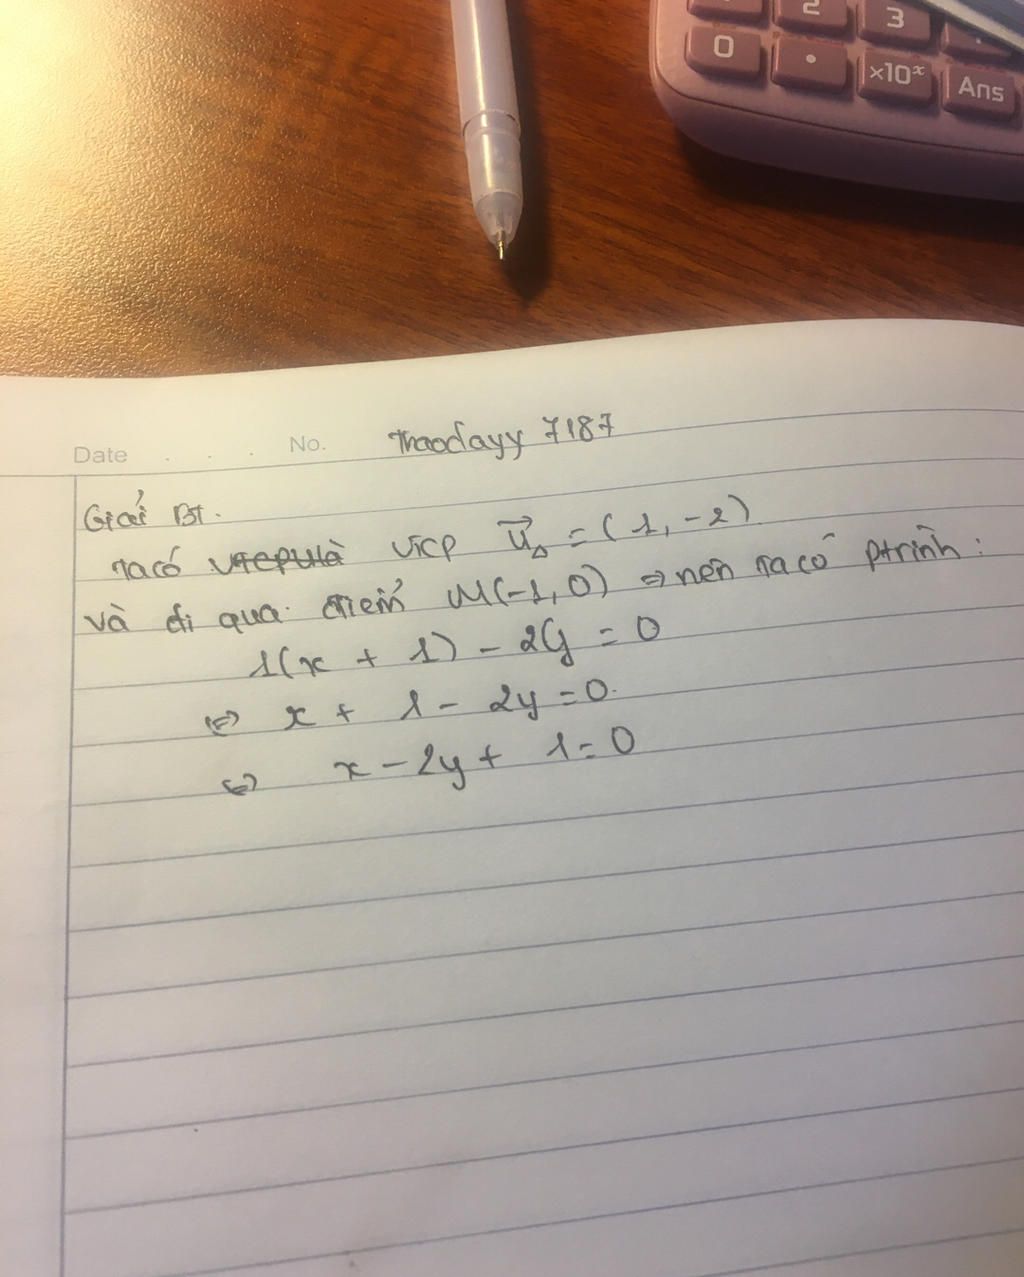 2
3
0
•
×10ˣ
Ans
Date . . . No. Thaodayy 7187
Giải BT.
Ta có VTCP u⃗Δ = (1, -2)
và đi qua điểm M(-1, 0) ⇒ nên ta có ptrình :
1(x + 1) - 2y = 0
⇔ x + 1 - 2y = 0.
⇔ x - 2y + 1 = 0